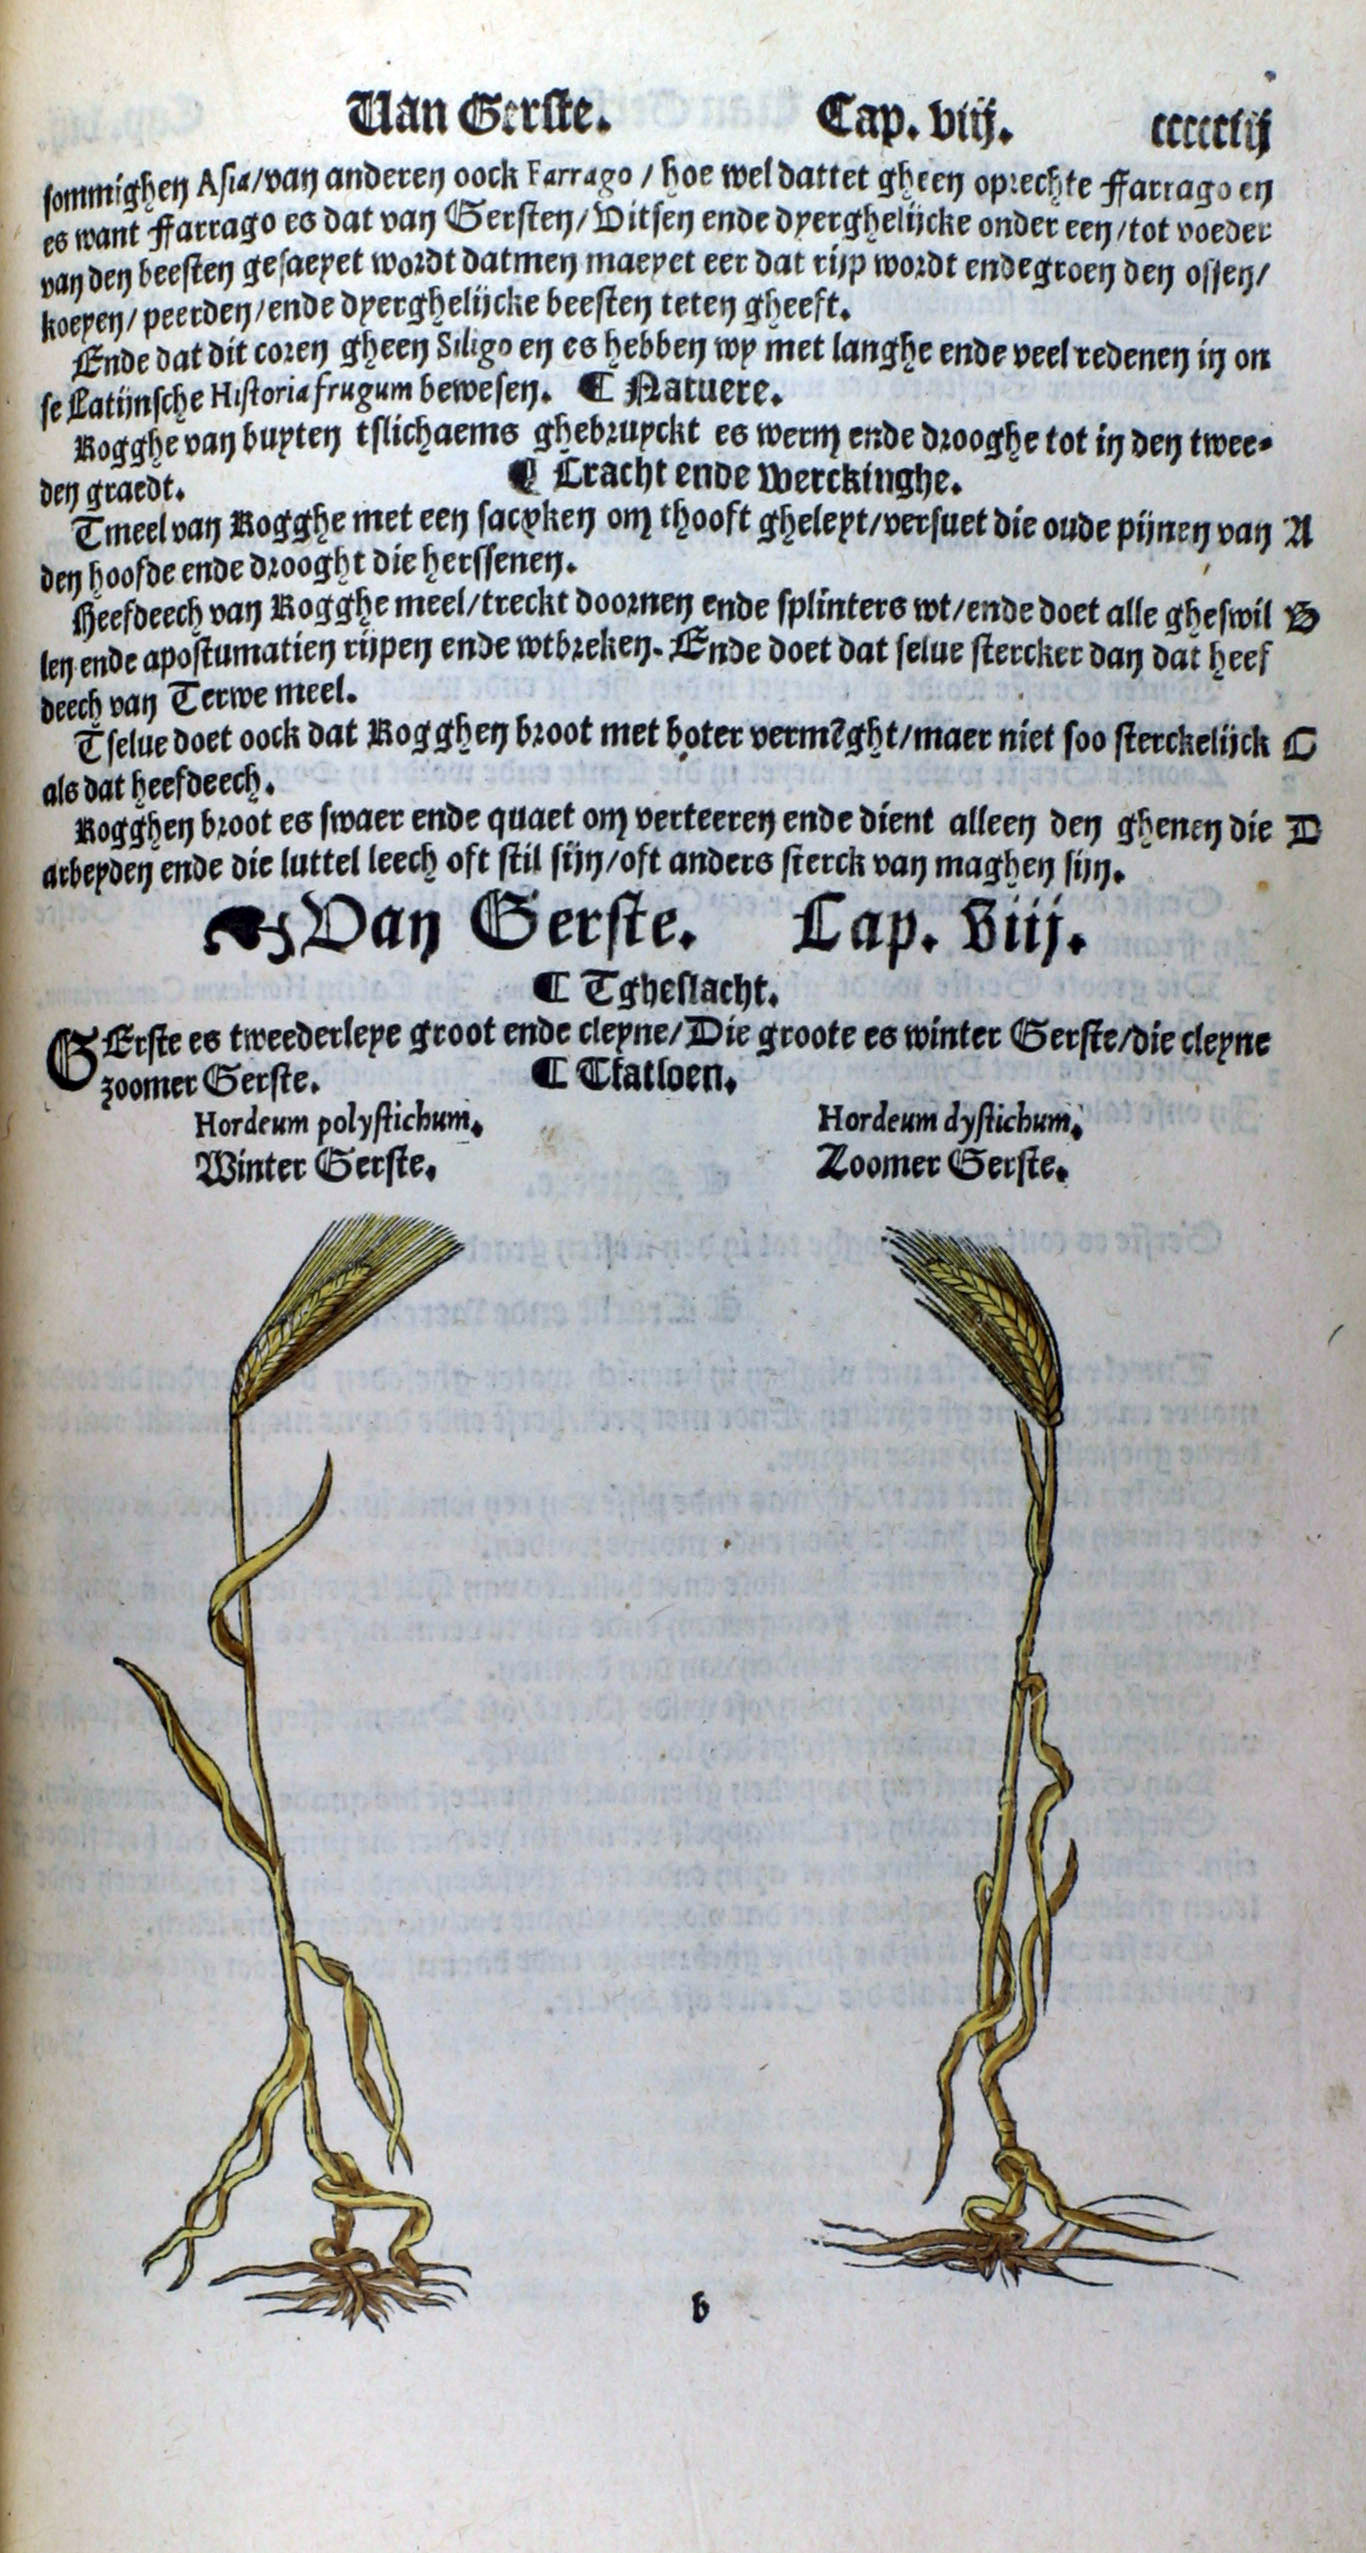 Van Gerste. Cap. viij. ccccccliij
sommighen Asia/van anderen oock Farrago / hoe wel dattet gheen oprechte Farrago en
es want Farrago es dat van Gersten/Vitsen ende dyerghelijcke onder een/tot voeder
van den beesten gesaeyet wordt datmen maeyet eer dat rijp wordt ende groen den ossen/
koeyen/ peerden/ende dyerghelijcke beesten teten gheeft.
Ende dat dit coren gheen Siligo en es hebben wy met langhe ende veel redenen in on
se Latijnsche Historia frugum bewesen. ¶ Natuere.
Rogghe van buyten tslichaems ghebruyckt es werm ende drooghe tot in den twee-
den graedt. ¶ Cracht ende werckinghe.
Tmeel van Rogghe met een sacyken om thooft gheleyt/versuet die oude pijnen van A
den hoofde ende drooght die herssenen.
Heefdeech van Rogghe meel/treckt doornen ende splinters wt/ende doet alle gheswil B
len ende apostumatien rijpen ende wtbreken. Ende doet dat selue stercker dan dat heef
deech van Terwe meel.
Tselue doet oock dat Rogghen broot met boter vermẽght/maer niet soo sterckelijck C
als dat heefdeech.
Rogghen broot es swaer ende quaet om verteeren ende dient alleen den ghenen die D
arbeyden ende die luttel leech oft stil sijn/oft anders sterck van maghen sijn.
☙ Van Gerste. Cap. viij.
¶ Tgheslacht.
GErste es tweederleye groot ende cleyne/Die groote es winter Gerste/die cleyne
zoomer Gerste. ¶ Tfatsoen.
Hordeum polystichum. Hordeum dystichum.
Winter Gerste. Zoomer Gerste.
b